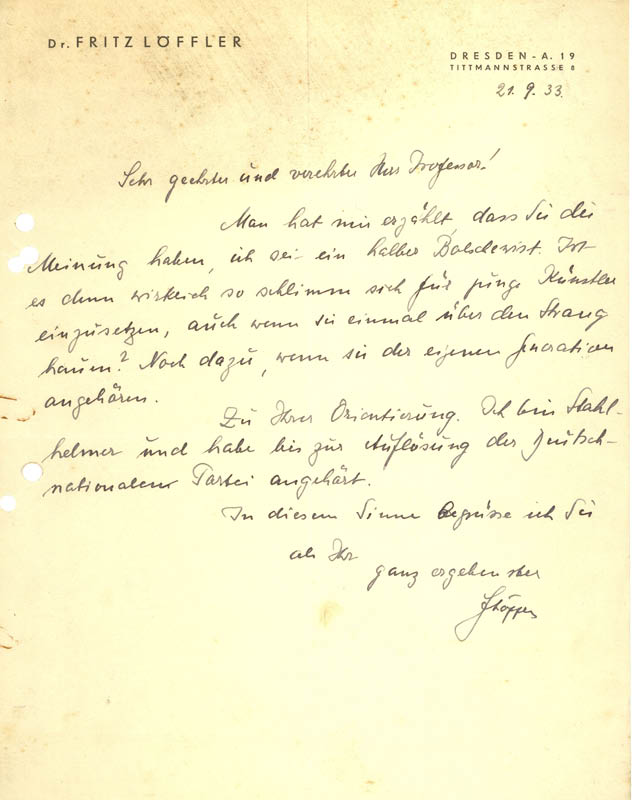 Dr. FRITZ LÖFFLER
DRESDEN-A. 19
TITTMANNSTRASSE 8
21. 9. 33.
Sehr geehrter und verehrter Herr Professor!
Man hat mir erzählt, dass Sie die
Meinung haben, ich sei ein halber Bolschewist. Ist
es denn wirklich so schlimm sich für junge Künstler
einzusetzen, auch wenn sie einmal über den Strang
hauen? Noch dazu, wenn sie der eigenen Generation
angehören.
Zu Ihrer Orientierung. Ich bin Stahl-
helmer und habe bis zur Auflösung der Deutsch-
nationalen Partei angehört.
In diesem Sinne begrüsse ich Sie
als Ihr
ganz ergebenster